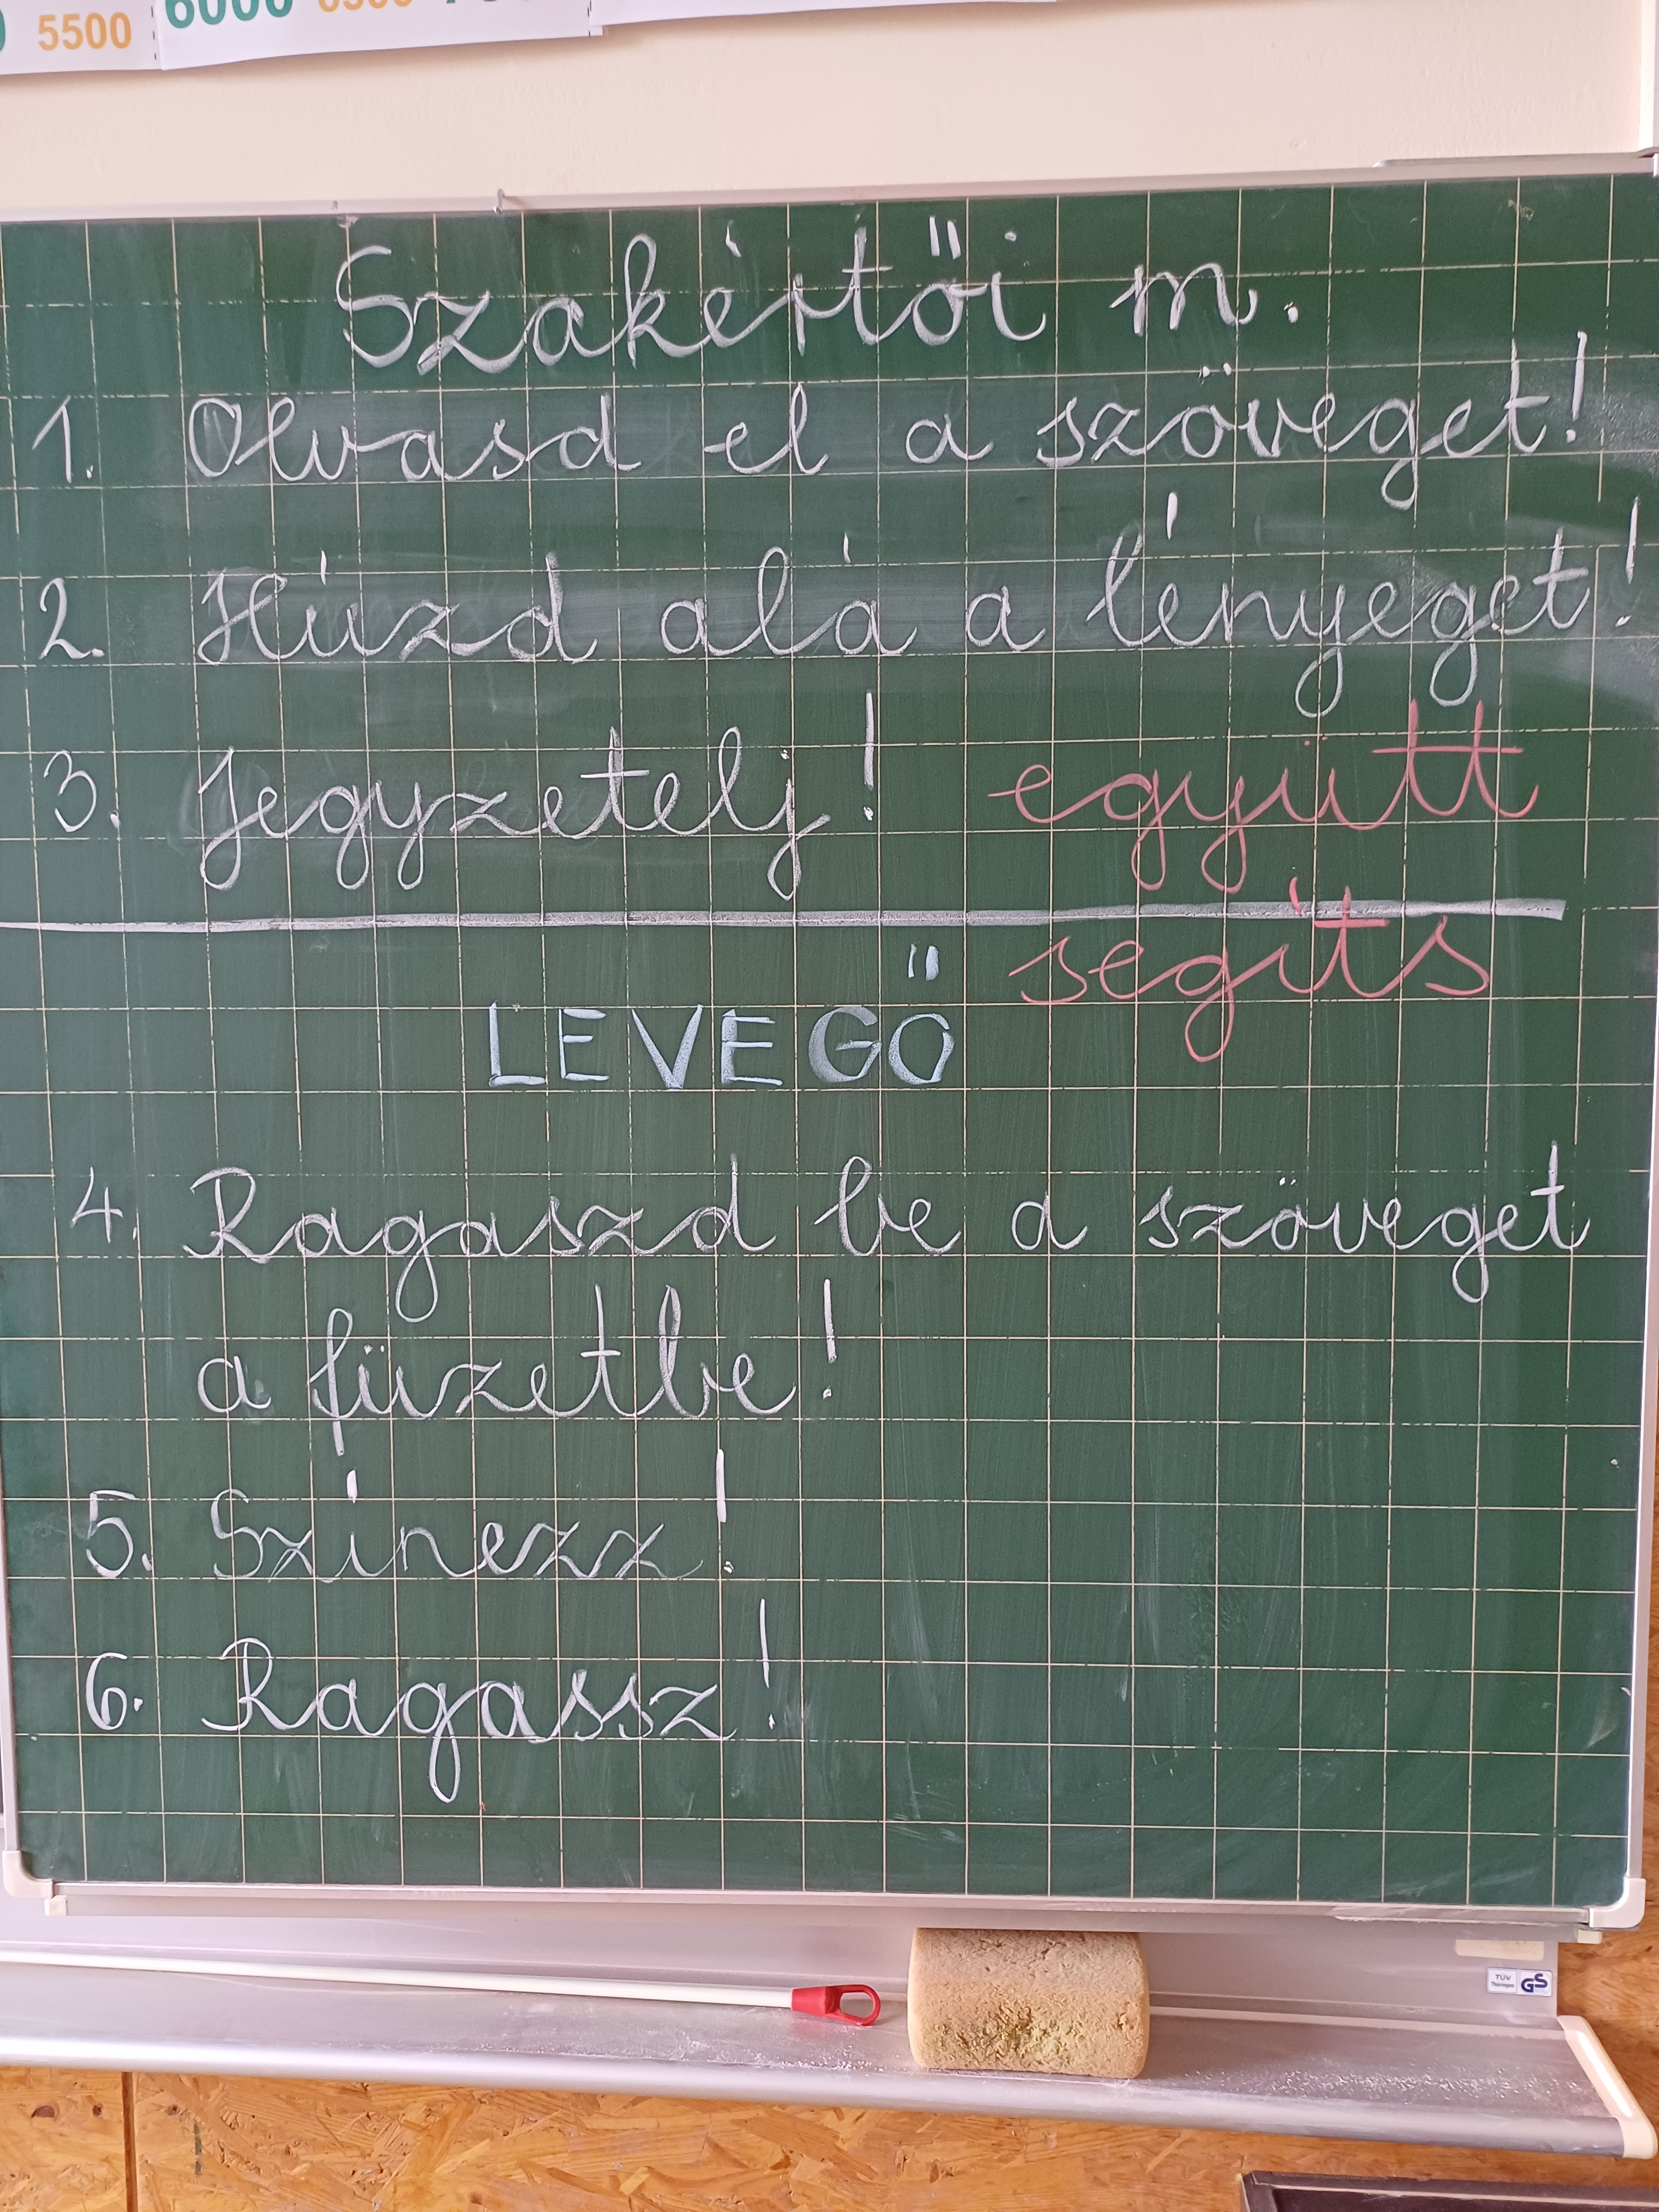 5500 6000 6500
Szakértői m.
1. Olvasd el a szöveget!
2. Húzd alá a lényeget!
3. Jegyzetelj! együtt
segíts
LEVEGŐ
4. Ragaszd be a szöveget
a füzetbe!
5. Színezz!
6. Ragassz!
TÜV
GS